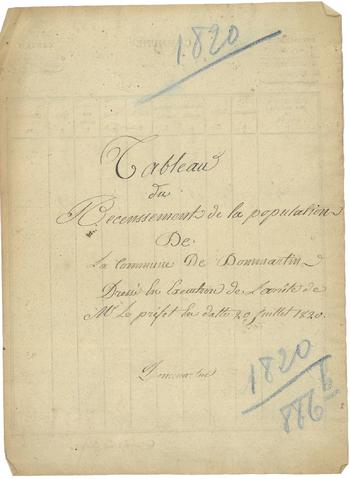 1820
Tableau
du
Recenssement de la population
De
La Commune De Dommartin
Dressé En Execution de L'arrêté de
Mr Le préfet En datte 29 Juillet 1820.
Dommartin
1820
886